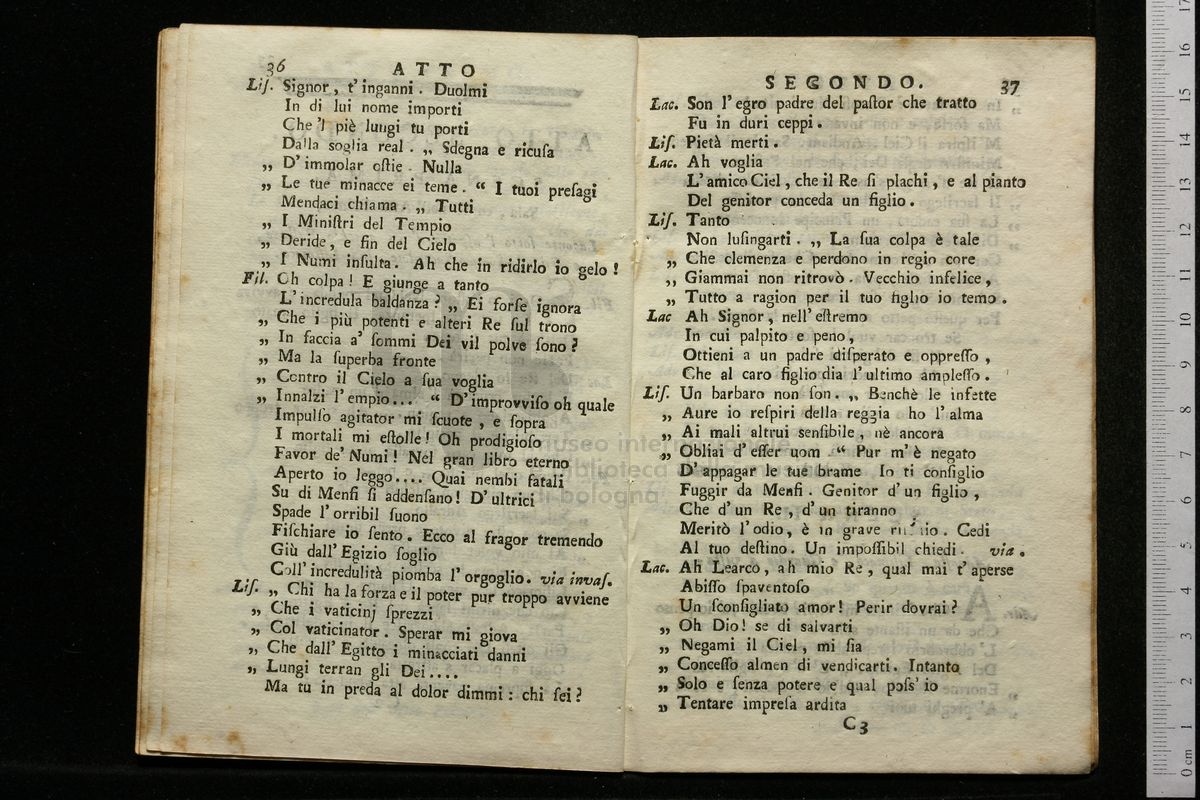 36
ATTO
Liſ. Signor, t'inganni. Duolmi
In di lui nome importi
Che 'l piè lungi tu porti
Dalla soglia real. „ Sdegna e ricuſa
„ D'immolar oſtie. Nulla
„ Le tue minacce ei teme. “ I tuoi preſagi
Mendaci chiama. „ Tutti
„ I Miniſtri del Tempio
„ Deride, e fin del Cielo
„ I Numi inſulta. Ah che in ridirlo io gelo!
Fil. Oh colpa! E giunge a tanto
L'incredula baldanza? „ Ei forſe ignora
„ Che i più potenti e alteri Re ſul trono
„ In faccia a' ſommi Dei vil polve ſono?
„ Ma la ſuperba fronte
„ Contro il Cielo a ſua voglia
„ Innalzi l'empio... “ D'improvviſo oh quale
Impulſo agitator mi ſcuote, e ſopra
I mortali mi eſtolle! Oh prodigioſo
Favor de' Numi! Nel gran libro eterno
Aperto io leggo.... Quai nembi fatali
Su di Menfi ſi addenſano! D'ultrici
Spade l'orribil ſuono
Fiſchiare io ſento. Ecco al fragor tremendo
Giù dall'Egizio ſoglio
Coll'incredulità piomba l'orgoglio. via invaſ.
Liſ. „ Chi ha la forza e il poter pur troppo avviene
„ Che i vaticinj ſprezzi
„ Col vaticinator. Sperar mi giova
„ Che dall'Egitto i minacciati danni
„ Lungi terran gli Dei....
Ma tu in preda al dolor dimmi: chi ſei?
SEGONDO.
37
Lac. Son l'egro padre del paſtor che tratto
Fu in duri ceppi.
Liſ. Pietà merti.
Lac. Ah voglia
L'amico Ciel, che il Re ſi plachi, e al pianto
Del genitor conceda un figlio.
Liſ. Tanto
Non luſingarti. „ La ſua colpa è tale
„ Che clemenza e perdono in regio core
„ Giammai non ritrovò. Vecchio infelice,
„ Tutto a ragion per il tuo figlio io temo.
Lac Ah Signor, nell'eſtremo
In cui palpito e peno,
Ottieni a un padre diſperato e oppreſſo,
Che al caro figlio dia l'ultimo ampleſſo.
Liſ. Un barbaro non ſon. „ Benchè le infette
„ Aure io reſpiri della reggia ho l'alma
„ Ai mali altrui senſibile, nè ancora
„ Obliai d'eſſer uom. “ Pur m'è negato
D'appagar le tue brame. Io ti conſiglio
Fuggir da Menfi. Genitor d'un figlio,
Che d'un Re, d'un tiranno
Meritò l'odio, è in grave Cedi
Al tuo deſtino. Un impoſſibil chiedi. via.
Lac. Ah Learco, ah mio Re, qual mai t'aperse
Abiſſo ſpaventoſo
Un ſconſigliato amor! Perir dovrai?
„ Oh Dio! se di salvarti
„ Negami il Ciel, mi ſia
„ Conceſſo almen di vendicarti. Intanto
„ Solo e ſenza potere e qual poſs'io
„ Tentare impreſa ardita
C3
museo internazionale
biblioteca della musica
di bologna